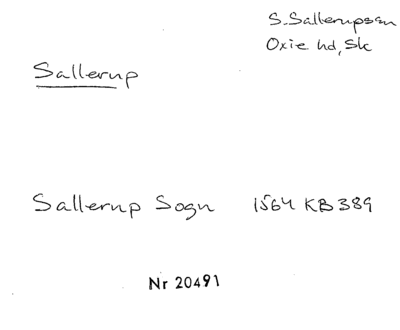 S. Sallerupssn
Oxie hd, Sk
Sallerup
Sallerup Sogn 1564 KB 389
Nr 20491